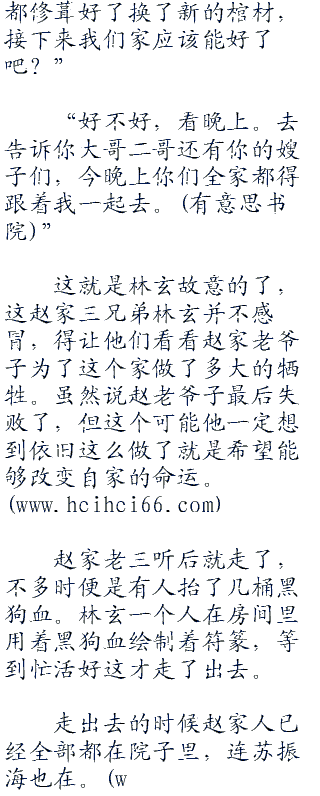 都修葺好了换了新的棺材，
接下来我们家应该能好了
吧？”
“好不好，看晚上。去
告诉你大哥二哥还有你的嫂
子们，今晚上你们全家都得
跟着我一起去。(有意思书
院)”
这就是林玄故意的了，
这赵家三兄弟林玄并不感
冒，得让他们看看赵家老爷
子为了这个家做了多大的牺
牲。虽然说赵老爷子最后失
败了，但这个可能他一定想
到依旧这么做了就是希望能
够改变自家的命运。
(www.hcihci66.com)
赵家老三听后就走了，
不多时便是有人抬了几桶黑
狗血。林玄一个人在房间里
用着黑狗血绘制着符篆，等
到忙活好这才走了出去。
走出去的时候赵家人已
经全部都在院子里，连苏振
海也在。(w